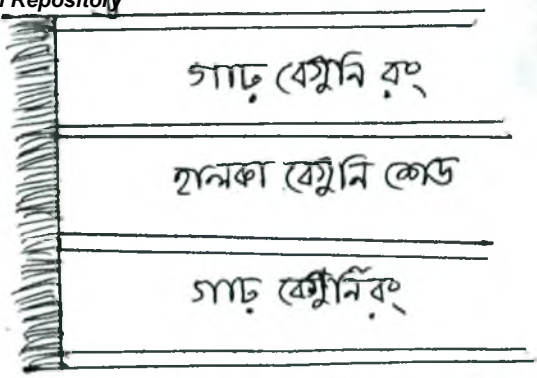 Repository
গাঢ় বেগুনি রং
হালকা বেগুনি শেড
গাঢ় বেগুনি রং